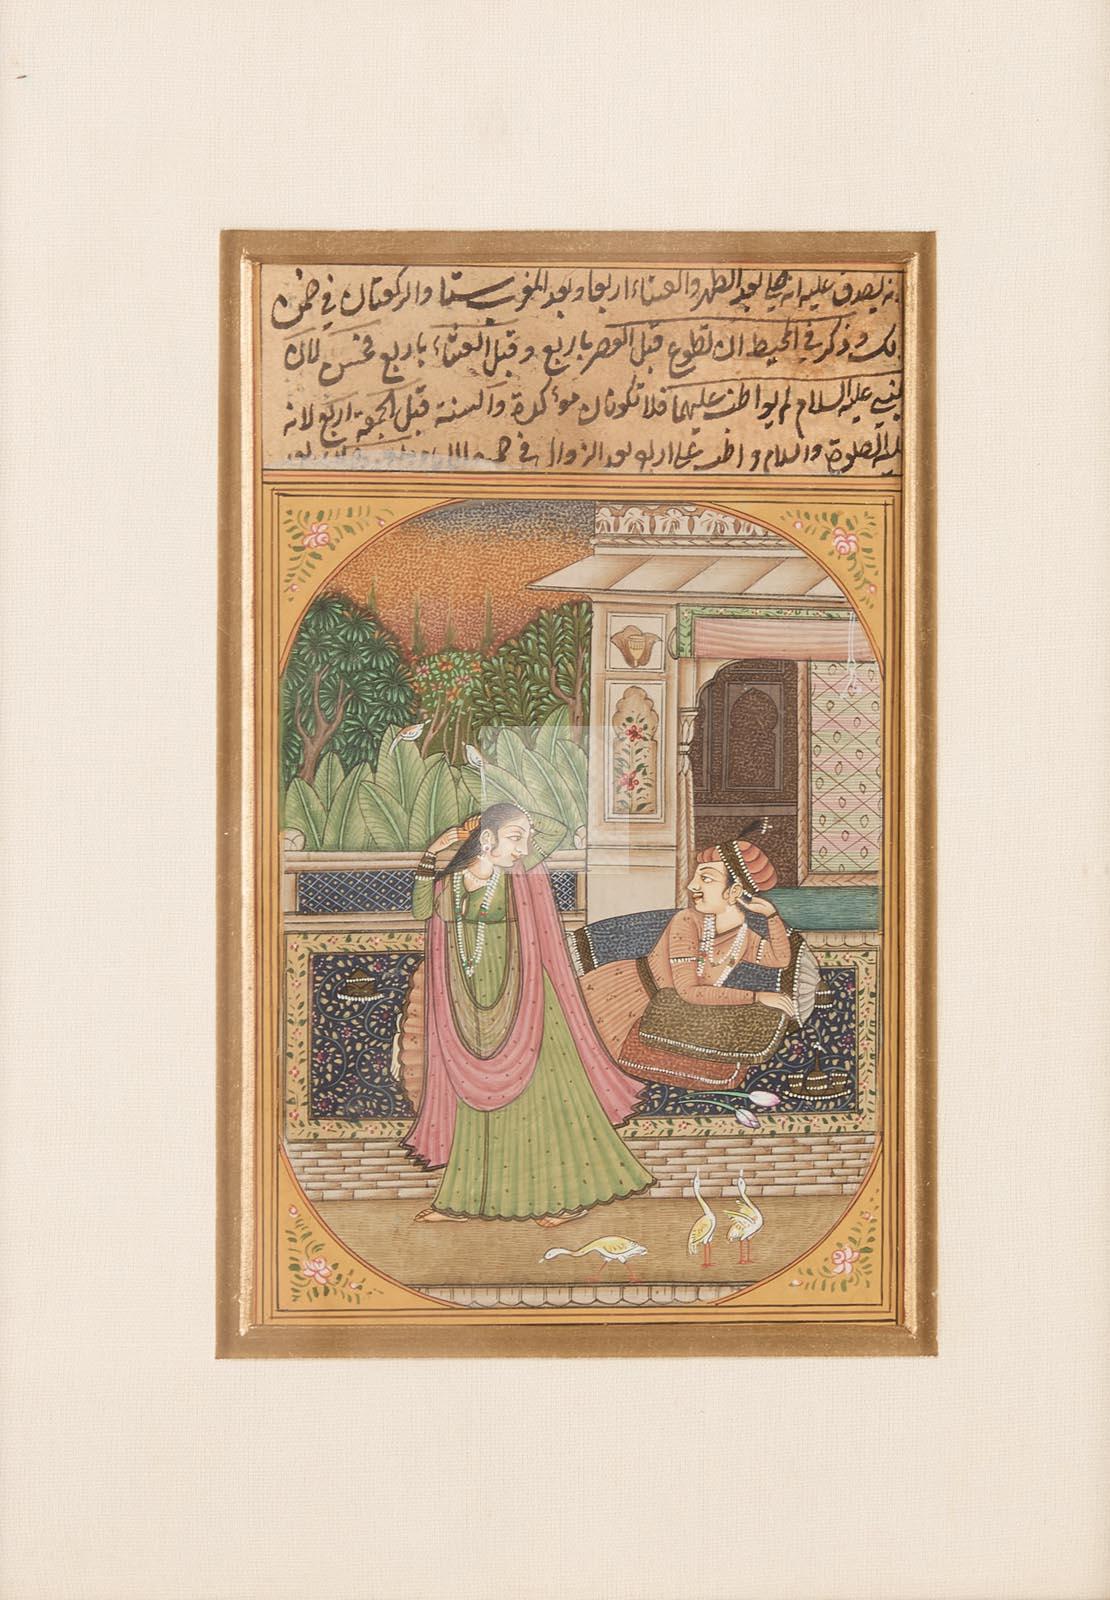 نه يصدق عليه انه صلى بعد الظهر والعشاء اربعا وبعد المغرب ستا والركعتان في ضمن
لك وذكر في المحيط ان تطوع قبل العصر باربع وقبل العشاء باربع فحسن لان
لنبي عليه السلام لم يواظب عليهما فلا تكونان مؤكدة والسنة قبل الجمعة اربع لانه
ليه الصلوة والسلام واظب على اربع بعد الزوال في